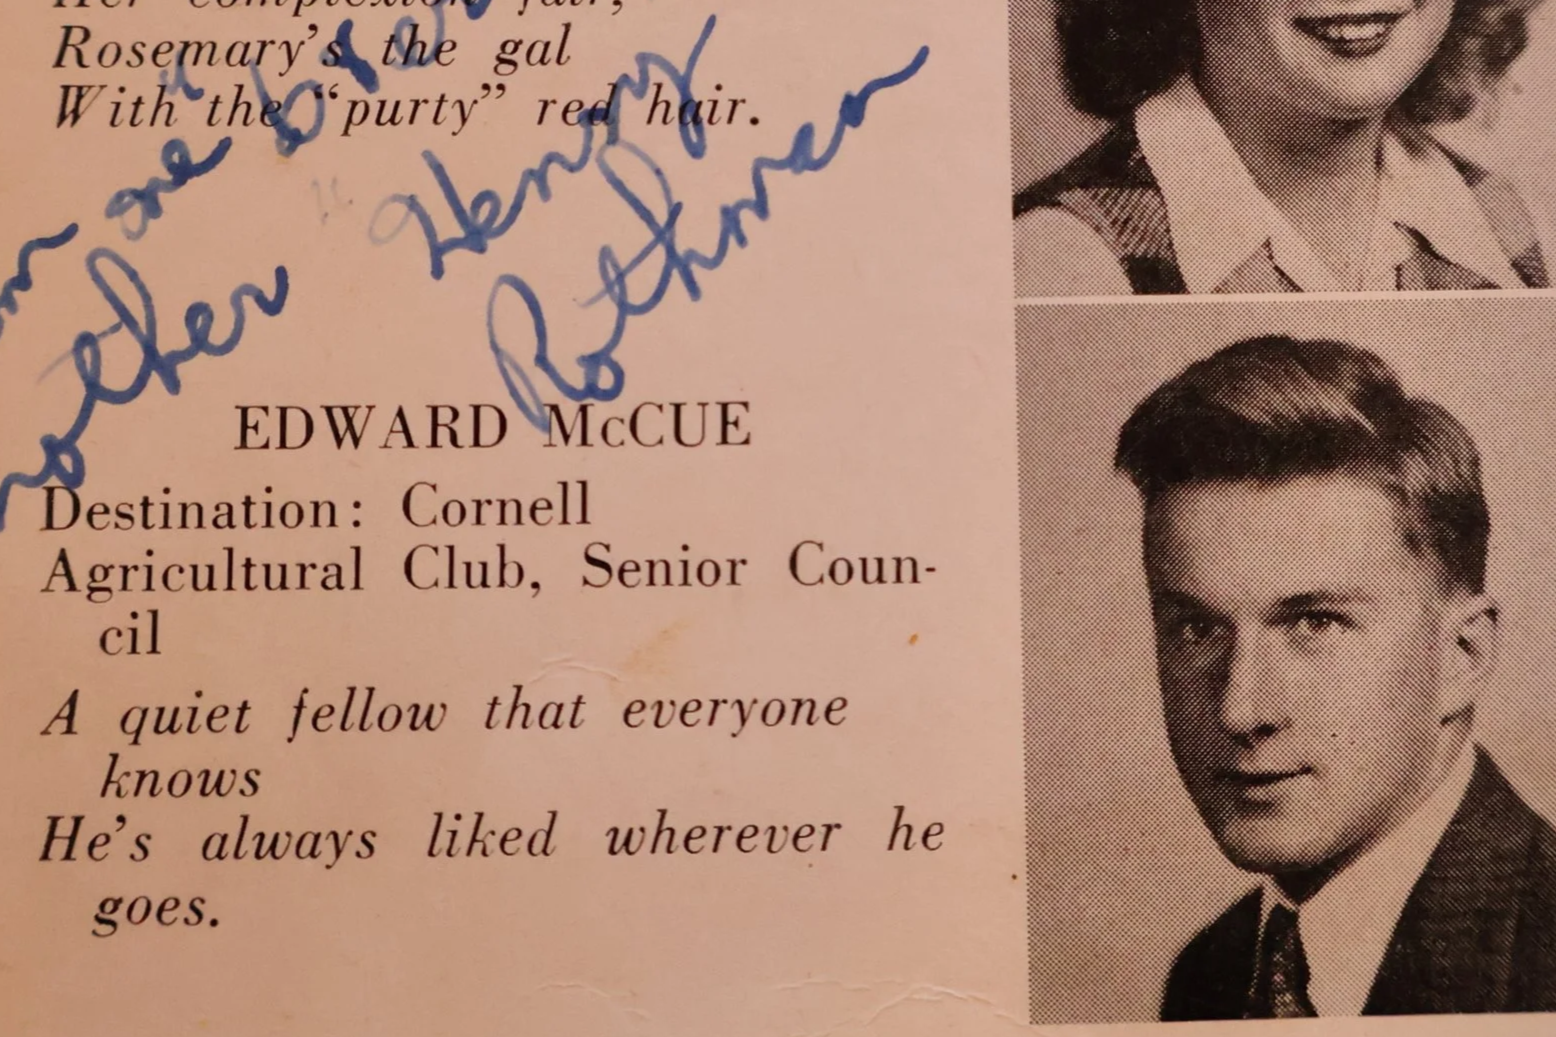 Her complexion fair,
Rosemary's the gal
With the "purty" red hair.
one
other
Henry
Rothman
EDWARD McCUE
Destination: Cornell
Agricultural Club, Senior Coun-
cil
A quiet fellow that everyone
knows
He's always liked wherever he
goes.